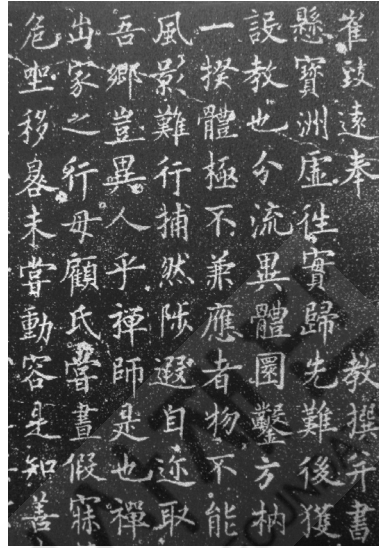 崔致遠奉　教撰并書
懸寶洲虛徃實歸先難後獲
設教也分流異體圜鑿方枘
一揆體極不兼應者物不能
風影難行捕然陟遐自迩取
吾鄉豈異人乎禪師是也禪
出家之行母顧氏嘗晝假寐
危坐移晷未嘗動容是知善